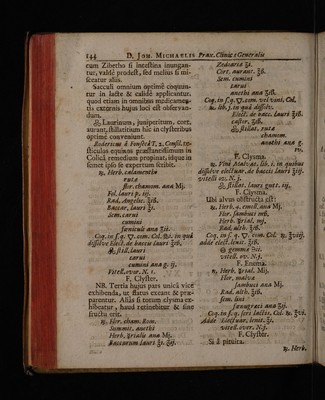 144 D. JOH. MICHAELIS Prax. Clinicæ Generalis
cum Zibetho si intestina inungan-
tur, valdè prodest, sed melius si mi-
sceatur aliis.
Sacculi omnium optimè cojuun-
tur in lacte & calidè applicantur,
quod etiam in omnibus medicamen-
tis externis hujus loci est observan-
dum.
Laurinum, juniperitum, cort.
aurant. stillatitium hîc in clysteribus
optimè conveniunt.
Rodericus à Fonseca T. 2. Consil. te-
sticulos equinos præstantissimum in
Colicâ remedium propinat, idque in
semet ipso se expertum scribit.
℞. Herb. calaminthæ
rutæ
flor. chamom. ana Mj.
Fol. lauri p. iij.
Rad. Angelic. ℥iß.
Baccar. lauri ℥ß.
Sem. carui
cumini
fœniculi ana ʒij.
Coq. in s. q. V. com. Col. in quâ
dissolve Elect. de baccis lauri ℥iß.
still. lauri
carui
cumini ana g. ij.
Vitell. over. N. 1.
F. Clyster.
NB. Tertia hujus pars unicâ vice
exhibenda, ut flatus exeant & præ-
parentur. Alias si totum clysma ex-
hibeatur, haud retinebitur & sine
fructu erit.
℞. Flor. cham. Rom.
Summit. anethi
Herb. ana Mj.
Baccarum lauri ℥j.
Zedoariæ ℥j.
Cort. aurant. ℥ß.
Sem. cumini
carui
anethi ana ʒiß.
Coq. in s. q. V. com. vel vani. Col.
lib. j. in quâ dissolve.
Elect. de bacc. lauri ℥iß.
castor. ʒß.
stillat. rutæ
chamom.
anethi ana g.
F. Clysma.
℞. Vini Malvat. lib. j. in quibus
dissolve electuar. de baccis lauri ℥iß.
vitell. ov. N. j.
stillat. lauri gutt. iij.
F. Clysma.
Ubi alvus obstructa est:
℞. Herb. centill. ana Mj
Flor. sambuci mß.
Herb. mj.
Rad. alth. ℥ß.
Coq. in s. q. V. com. Col.
adde elect. lenit. ℥iß.
gemmæ ʒij.
vitell. ov. N. j.
F. Enema.
℞. Herb. Mij.
Flor. malvæ
sambuci ana Mj
Rad. alth. ℥ß.
sem. lini
fœnugræci ana ʒij.
Coq. in s. q. seri lactis. Col.
Adde Electuar. lenit. ℥j.
vitell. over. N. j.
F. Clyster.
Si à pituita.
℞. Herb.